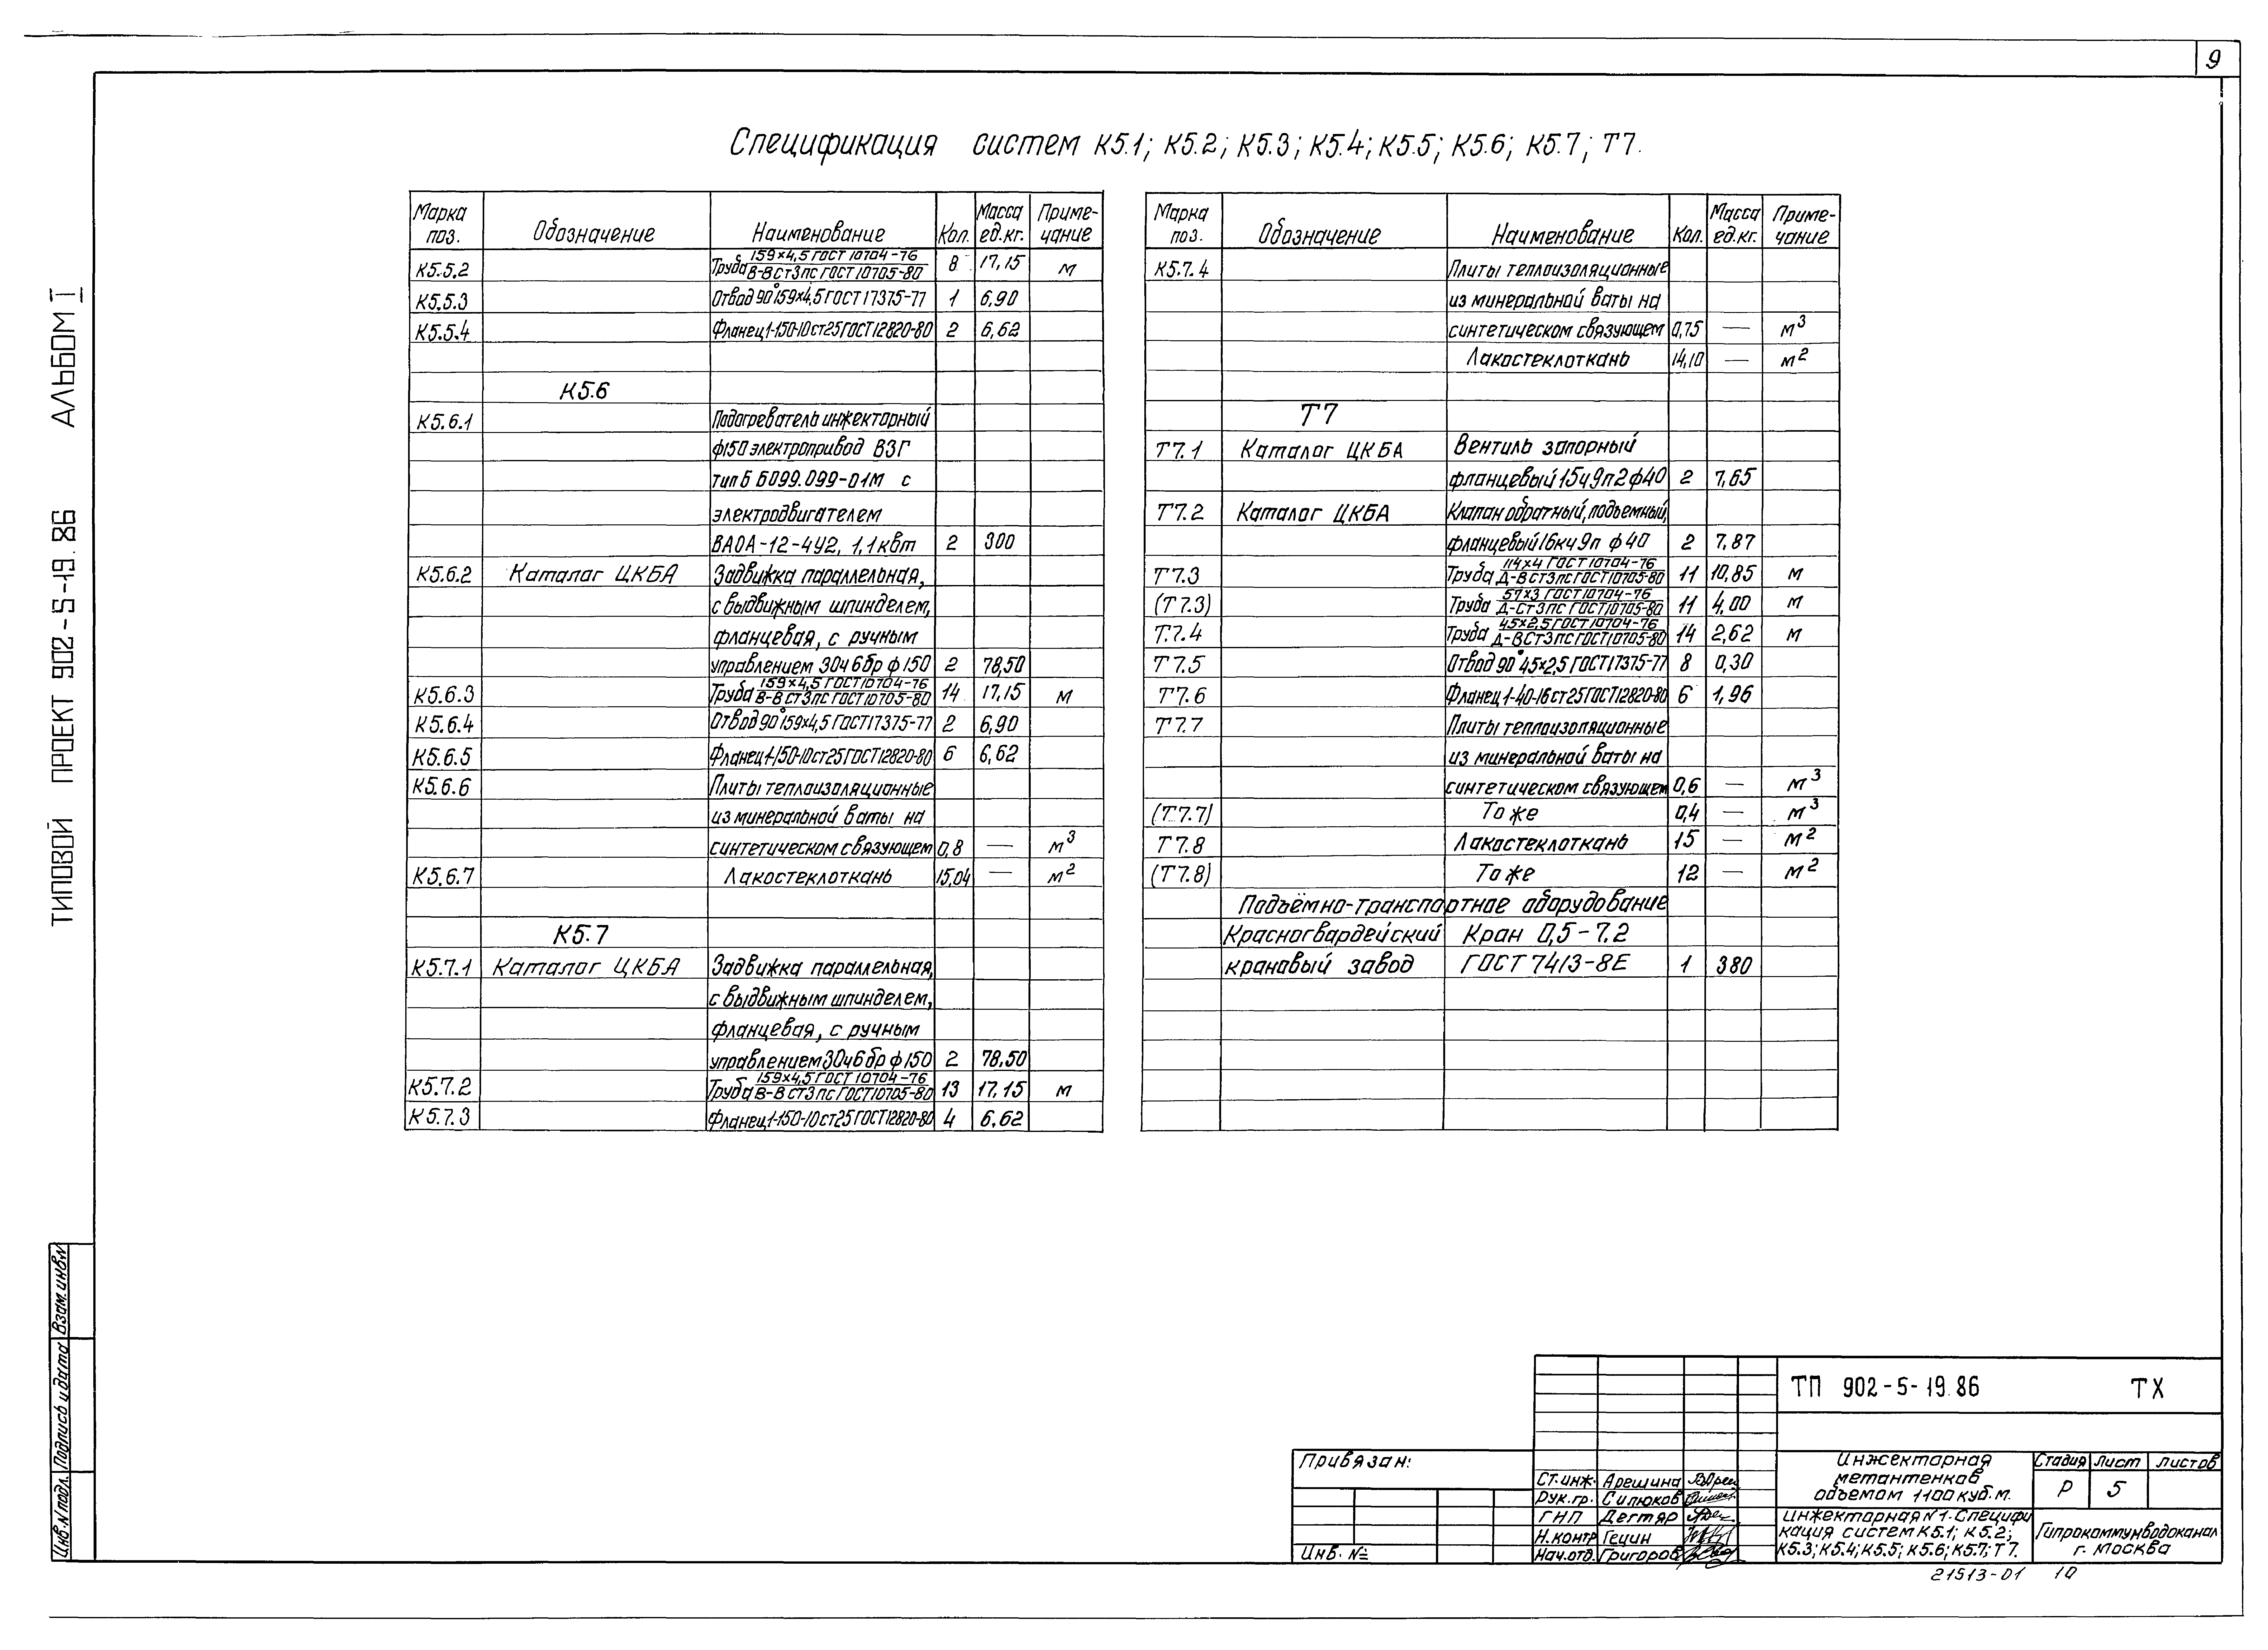 9
Спецификация систем К5.1; К5.2; К5.3; К5.4; К5.5; К5.6; К5.7; Т7.
Марка поз. Обозначение Наименование Кол. Масса ед.кг. Приме-чание
К5.5.2 Труба 159×4,5 ГОСТ 10704-76 / В-В Ст3пс ГОСТ 10705-80 8 17,15 м
К5.5.3 Отвод 90° 159×4,5 ГОСТ 17375-77 1 6,90
К5.5.4 Фланец 1-150-10 ст25 ГОСТ 12820-80 2 6,62
К5.6
К5.6.1 Подогреватель инжекторный
ф150 электропривод ВЗГ
тип Б Б099.099-01М с
электродвигателем
ВАОА-12-4У2, 1,1 квт 2 300
К5.6.2 Каталог ЦКБА Задвижка параллельная,
с выдвижным шпинделем,
фланцевая, с ручным
управлением 30ч6бр ф150 2 78,50
К5.6.3 Труба 159×4,5 ГОСТ 10704-76 / В-В Ст3пс ГОСТ 10705-80 14 17,15 м
К5.6.4 Отвод 90° 159×4,5 ГОСТ 17375-77 2 6,90
К5.6.5 Фланец 1-150-10 ст25 ГОСТ 12820-80 6 6,62
К5.6.6 Плиты теплоизоляционные
из минеральной ваты на
синтетическом связующем 0,8 — м³
К5.6.7 Лакостеклоткань 15,04 — м²
К5.7
К5.7.1 Каталог ЦКБА Задвижка параллельная,
с выдвижным шпинделем,
фланцевая, с ручным
управлением 30ч6бр ф150 2 78,50
К5.7.2 Труба 159×4,5 ГОСТ 10704-76 / В-В Ст3пс ГОСТ 10705-80 13 17,15 м
К5.7.3 Фланец 1-150-10 ст25 ГОСТ 12820-80 4 6,62
Марка поз. Обозначение Наименование Кол. Масса ед.кг. Приме-чание
К5.7.4 Плиты теплоизоляционные
из минеральной ваты на
синтетическом связующем 0,75 — м³
Лакостеклоткань 14,10 — м²
Т7
Т7.1 Каталог ЦКБА Вентиль запорный
фланцевый 15ч9п2 ф40 2 7,65
Т7.2 Каталог ЦКБА Клапан обратный, подъемный,
фланцевый 16кч9п ф40 2 7,87
Т7.3 Труба 114×4 ГОСТ 10704-76 / Д-В Ст3пс ГОСТ 10705-80 11 10,85 м
(Т7.3) Труба 57×3 ГОСТ 10704-76 / Д-Ст3пс ГОСТ 10705-80 11 4,00 м
Т.7.4 Труба 45×2,5 ГОСТ 10704-76 / Д-В Ст3пс ГОСТ 10705-80 14 2,62 м
Т7.5 Отвод 90° 45×2,5 ГОСТ 17375-77 8 0,30
Т7.6 Фланец 1-40-16 ст25 ГОСТ 12820-80 6 1,96
Т7.7 Плиты теплоизоляционные
из минеральной ваты на
синтетическом связующем 0,6 — м³
(Т7.7) То же 0,4 — м³
Т7.8 Лакостеклоткань 15 — м²
(Т7.8) То же 12 — м²
Подъёмно-транспортное оборудование
Красногвардейский Кран 0,5-7.2
крановый завод ГОСТ 7413-8Е 1 380
ТИПОВОЙ ПРОЕКТ 902-5-19.86 АЛЬБОМ I
Инв.N подл. Подпись и дата Взам.инв.N
Привязан:
Инв. №
Ст.инж. Арешина
Рук.гр. Силюков
ГНП Дегтяр
Н.контр Гецин
Нач.отд. Григоров
ТП 902-5-19.86 ТХ
Инжекторная
метантенков
объемом 1100 куб.м.
Стадия Лист Листов
Р 5
Инжекторная N1. Специфи
кация систем К5.1; К5.2;
К5.3; К5.4; К5.5; К5.6; К5.7; Т7.
Гипрокоммунводоканал
г. Москва
21513-01 10